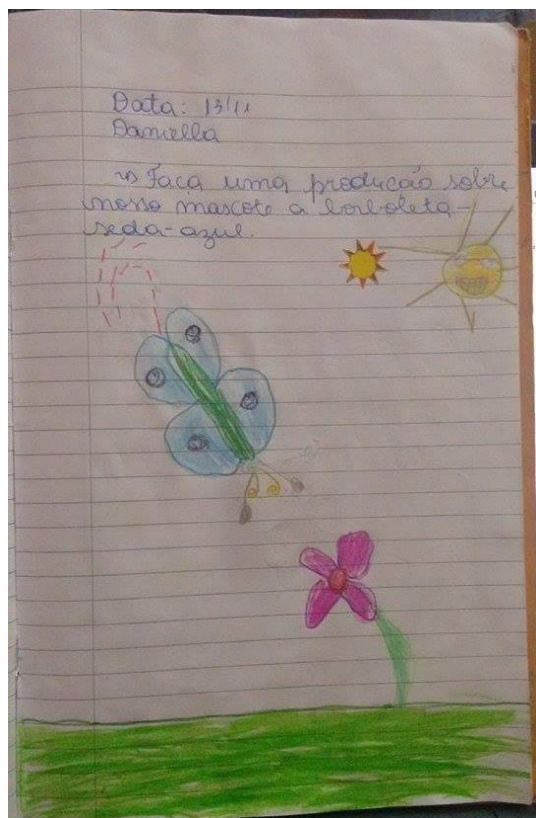 Data: 13/11
Daniella
1) Faça uma produção sobre
nosso mascote a borboleta-
seda-azul.